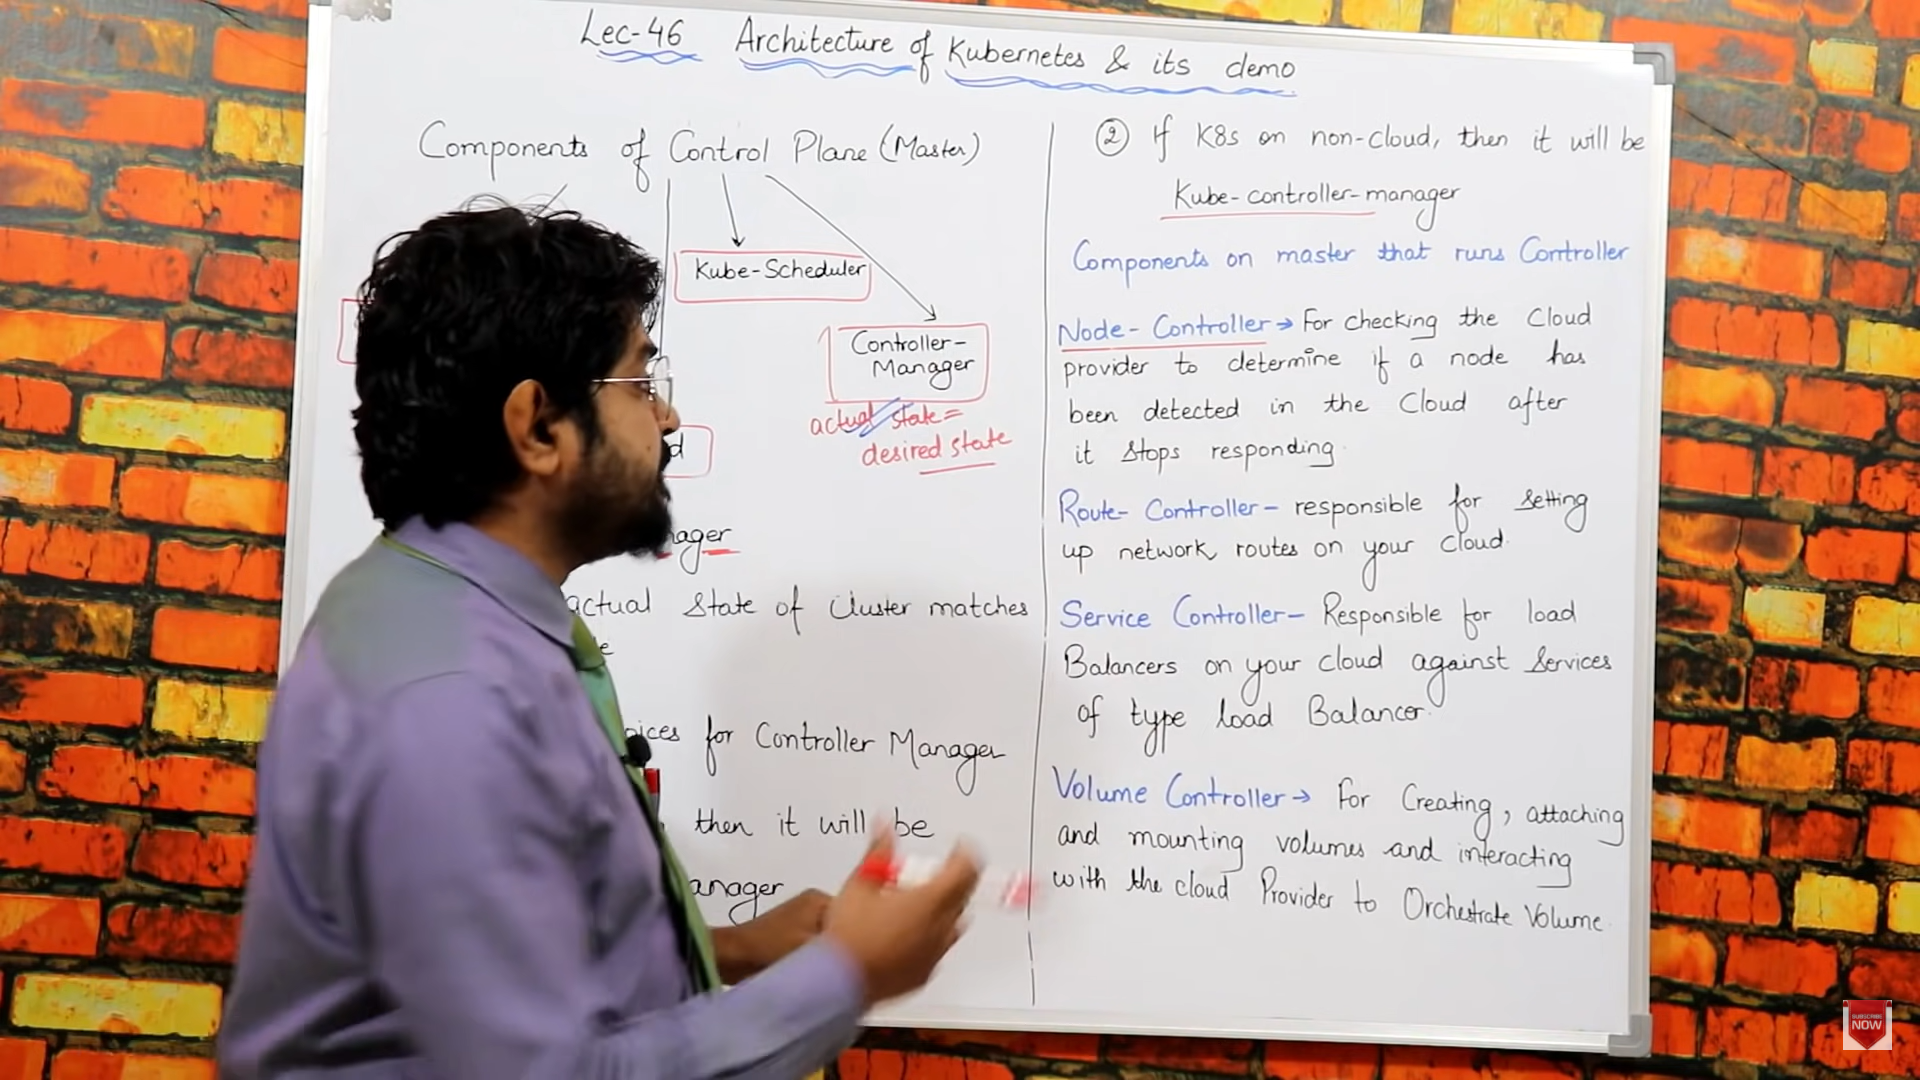 Lec-46 Architecture of Kubernetes & its demo
Components of Control Plane (Master)
Kube-Scheduler
Controller-
Manager
actual state =
desired state
actual State of Cluster matches
for Controller Manager
then it will be
② If K8s on non-cloud, then it will be
Kube-controller-manager
Components on master that runs Controller
Node-Controller → For checking the Cloud
provider to determine if a node has
been detected in the Cloud after
it stops responding.
Route-Controller - responsible for setting
up network routes on your cloud.
Service Controller - Responsible for load
Balancers on your cloud against services
of type load Balancer.
Volume Controller → For Creating, attaching
and mounting volumes and interacting
with the cloud Provider to Orchestrate Volume.
SUBSCRIBE
NOW